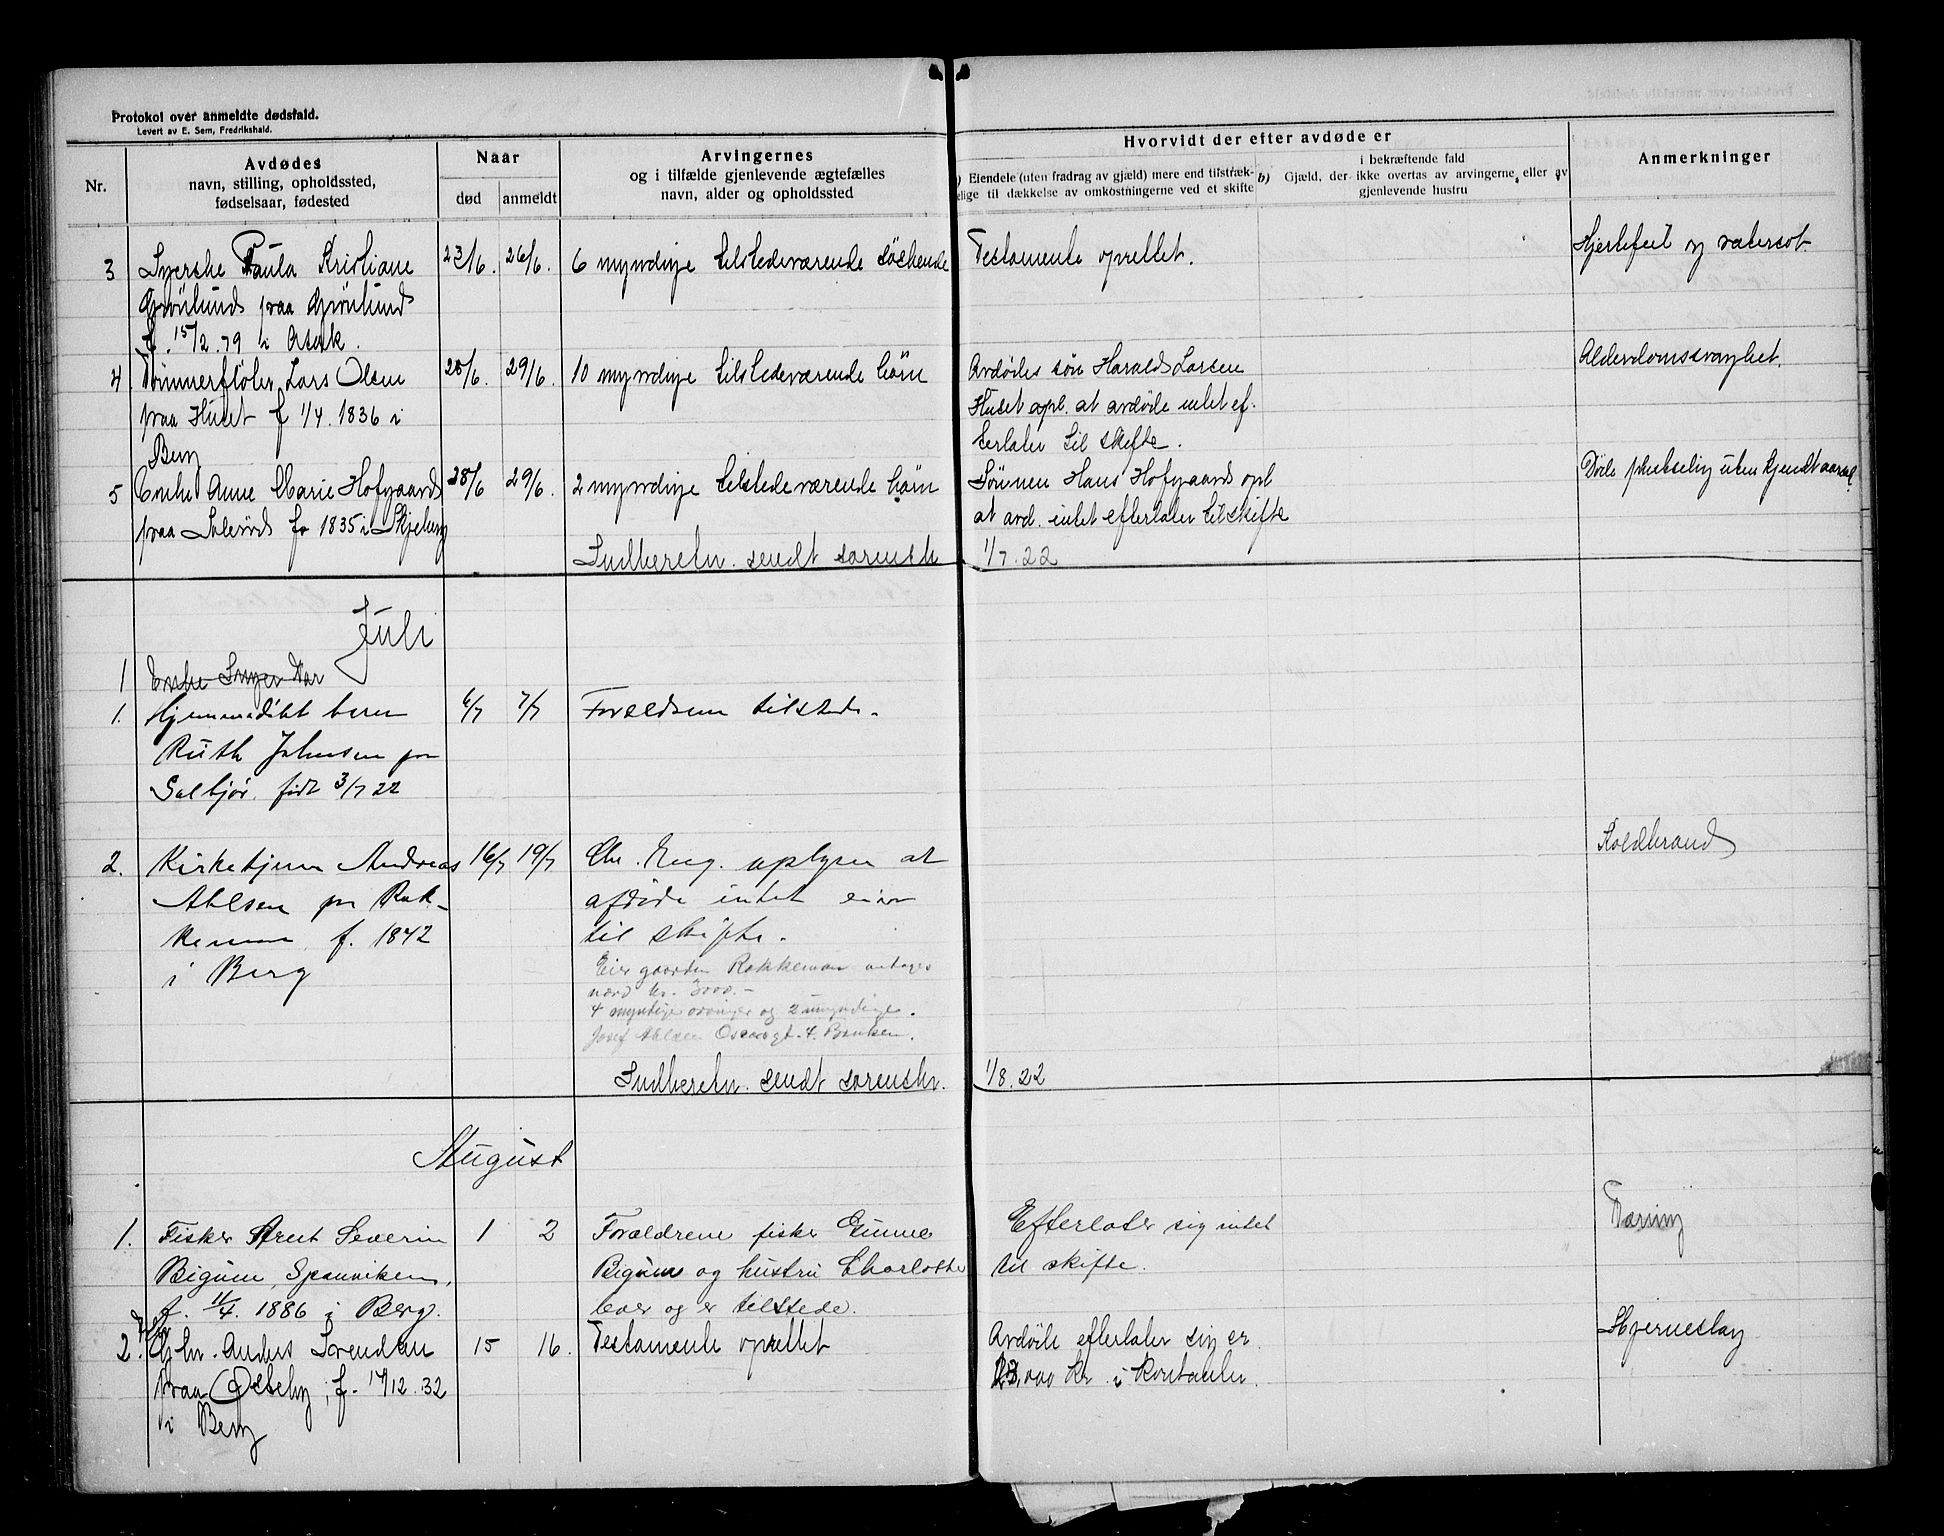 Protokol over anmeldte dødsfald.
Levert av E. Sem, Fredrikshald.
Nr.
Avdødes
navn, stilling, opholdssted,
fødselsaar, fødested
Naar
død
anmeldt
Arvingernes
og i tilfælde gjenlevende ægtefælles
navn, alder og opholdssted
Hvorvidt der efter avdøde er
) Eiendele (uten fradrag av gjæld) mere end tilstræk-
lige til dækkelse av omkostningerne ved et skifte
i bekræftende fald
b) Gjæld, der ikke overtas av arvingerne, eller av
gjenlevende hustru
Anmerkninger
3 Paula Kristiane 23/6. 26/6. 6 myndige tilstedeværende søskende Testamente oprettet. Hjertefeil og vatersot
Grønlund paa Grønlund
f. 15/2.79 i Asak.
4 Tømmerfløter Lars Olsen 28/6. 29/6. 10 myndige tilstedeværende børn Avdødes søn Harald Larsen Alderdomssvaghet.
paa Huset f 1/4. 1836 i Huset opl. at avdøde intet ef-
Berg terlater til skifte.
5 Enke Anne Marie Hofgaard 28/6 29/6. 2 myndige tilstedeværende børn Sønnen Hans Hofgaard opl Døde pludselig uten kjendt aarsak.
paa f 1835 i Skjeberg at avd. intet efterlater til skifte
Indberetn. sendt sorenskr 1/7.22
Juli
1 Enke Inger
1. Hjemmedøbt barn 6/7 7/7 Forældrene tilstede.
Ruth Johnsen paa
født 3/7 22
2. Kirketjener Andreas 16/7 19/7 Chr. Eng. oplyser at Koldbrand
Ahlsen paa Rok- afdøde intet eier
keman f. 1842 til skifte.
i Berg
Eier gaarden Rokkeman antages
værd kr. 3000.-
4 myndige arvinger og 2 umyndige.
Josef Ahlsen Oscarsgt. 4. Banken.
Indberetn. sendt sorenskr. 1/8.22
August
1. Fisker Arent Severin 1 2 Forældrene fisker Gunne Efterlater sig intet Tæring
Bigum, Sponviken, Bigum og hustru Charlotte til skifte.
f. 11/4. 1886 i Berg. lever og er tilstede.
2. Anders Svendsen 15 16. Testamente oprettet Avdøde efterlater sig ca Hjerneslag
paa Ødeby, f. 17/12.32 kr i kontanter.
i Berg